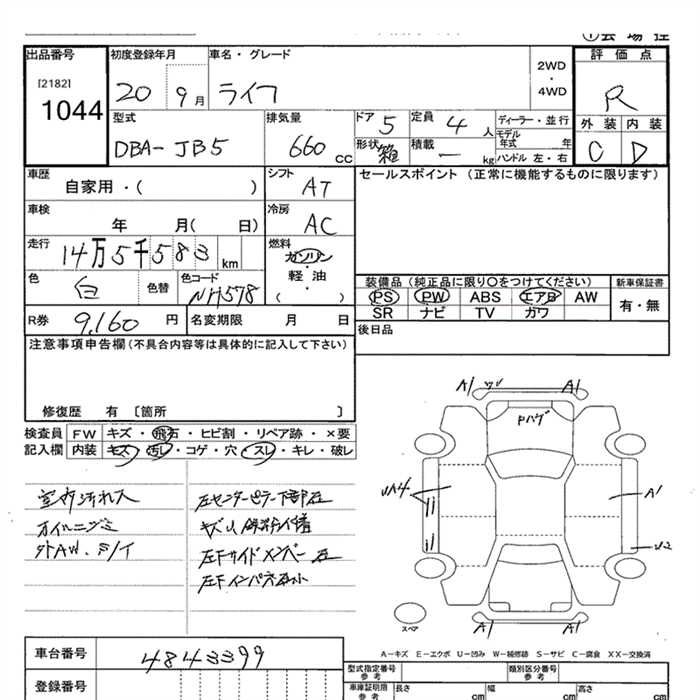 出品番号
[2182]
1044
初度登録年月
20 9月
車名・グレード
ライフ
2WD
・
4WD
評価点
R
外装 内装
C D
型式
DBA-JB5
排気量
660 CC
ドア 5
形状 箱
定員 4 人
積載 — kg
ディーラー・並行
モデル年式 年
ハンドル 左・右
車歴
自家用・( )
シフト
AT
セールスポイント (正常に機能するものに限ります)
車検
年 月( 日)
冷房
AC
走行
14万5千583 km
燃料
ガソリン
軽油
・
( )
色
白
色替
色コード
NH578
装備品(純正品に限り○をつけてください)
PS PW ABS エアB AW
SR ナビ TV ガワ
新車保証書
有・無
R券 9,160 円
名変期限 月 日
後日品
注意事項申告欄(不具合内容等は具体的に記入して下さい)
修復歴 有 〔箇所 〕
検査員
記入欄
FW キズ・飛石・ヒビ割・リペア跡・×要
内装 キズ・汚レ・コゲ・穴・スレ・キレ・破レ
室内汚れ大
オイルニジミ
A1 A1
Pハゲ
UA4
A1
A1 A1
スペア
A−キズ E−エクボ U−凹み W−補修跡 S−サビ C−腐食 XX−交換済
車台番号
4843399
登録番号
型式指定番号
参考
類別区分番号
参考
車庫証明用
参考
長さ cm
幅 cm
高さ cm